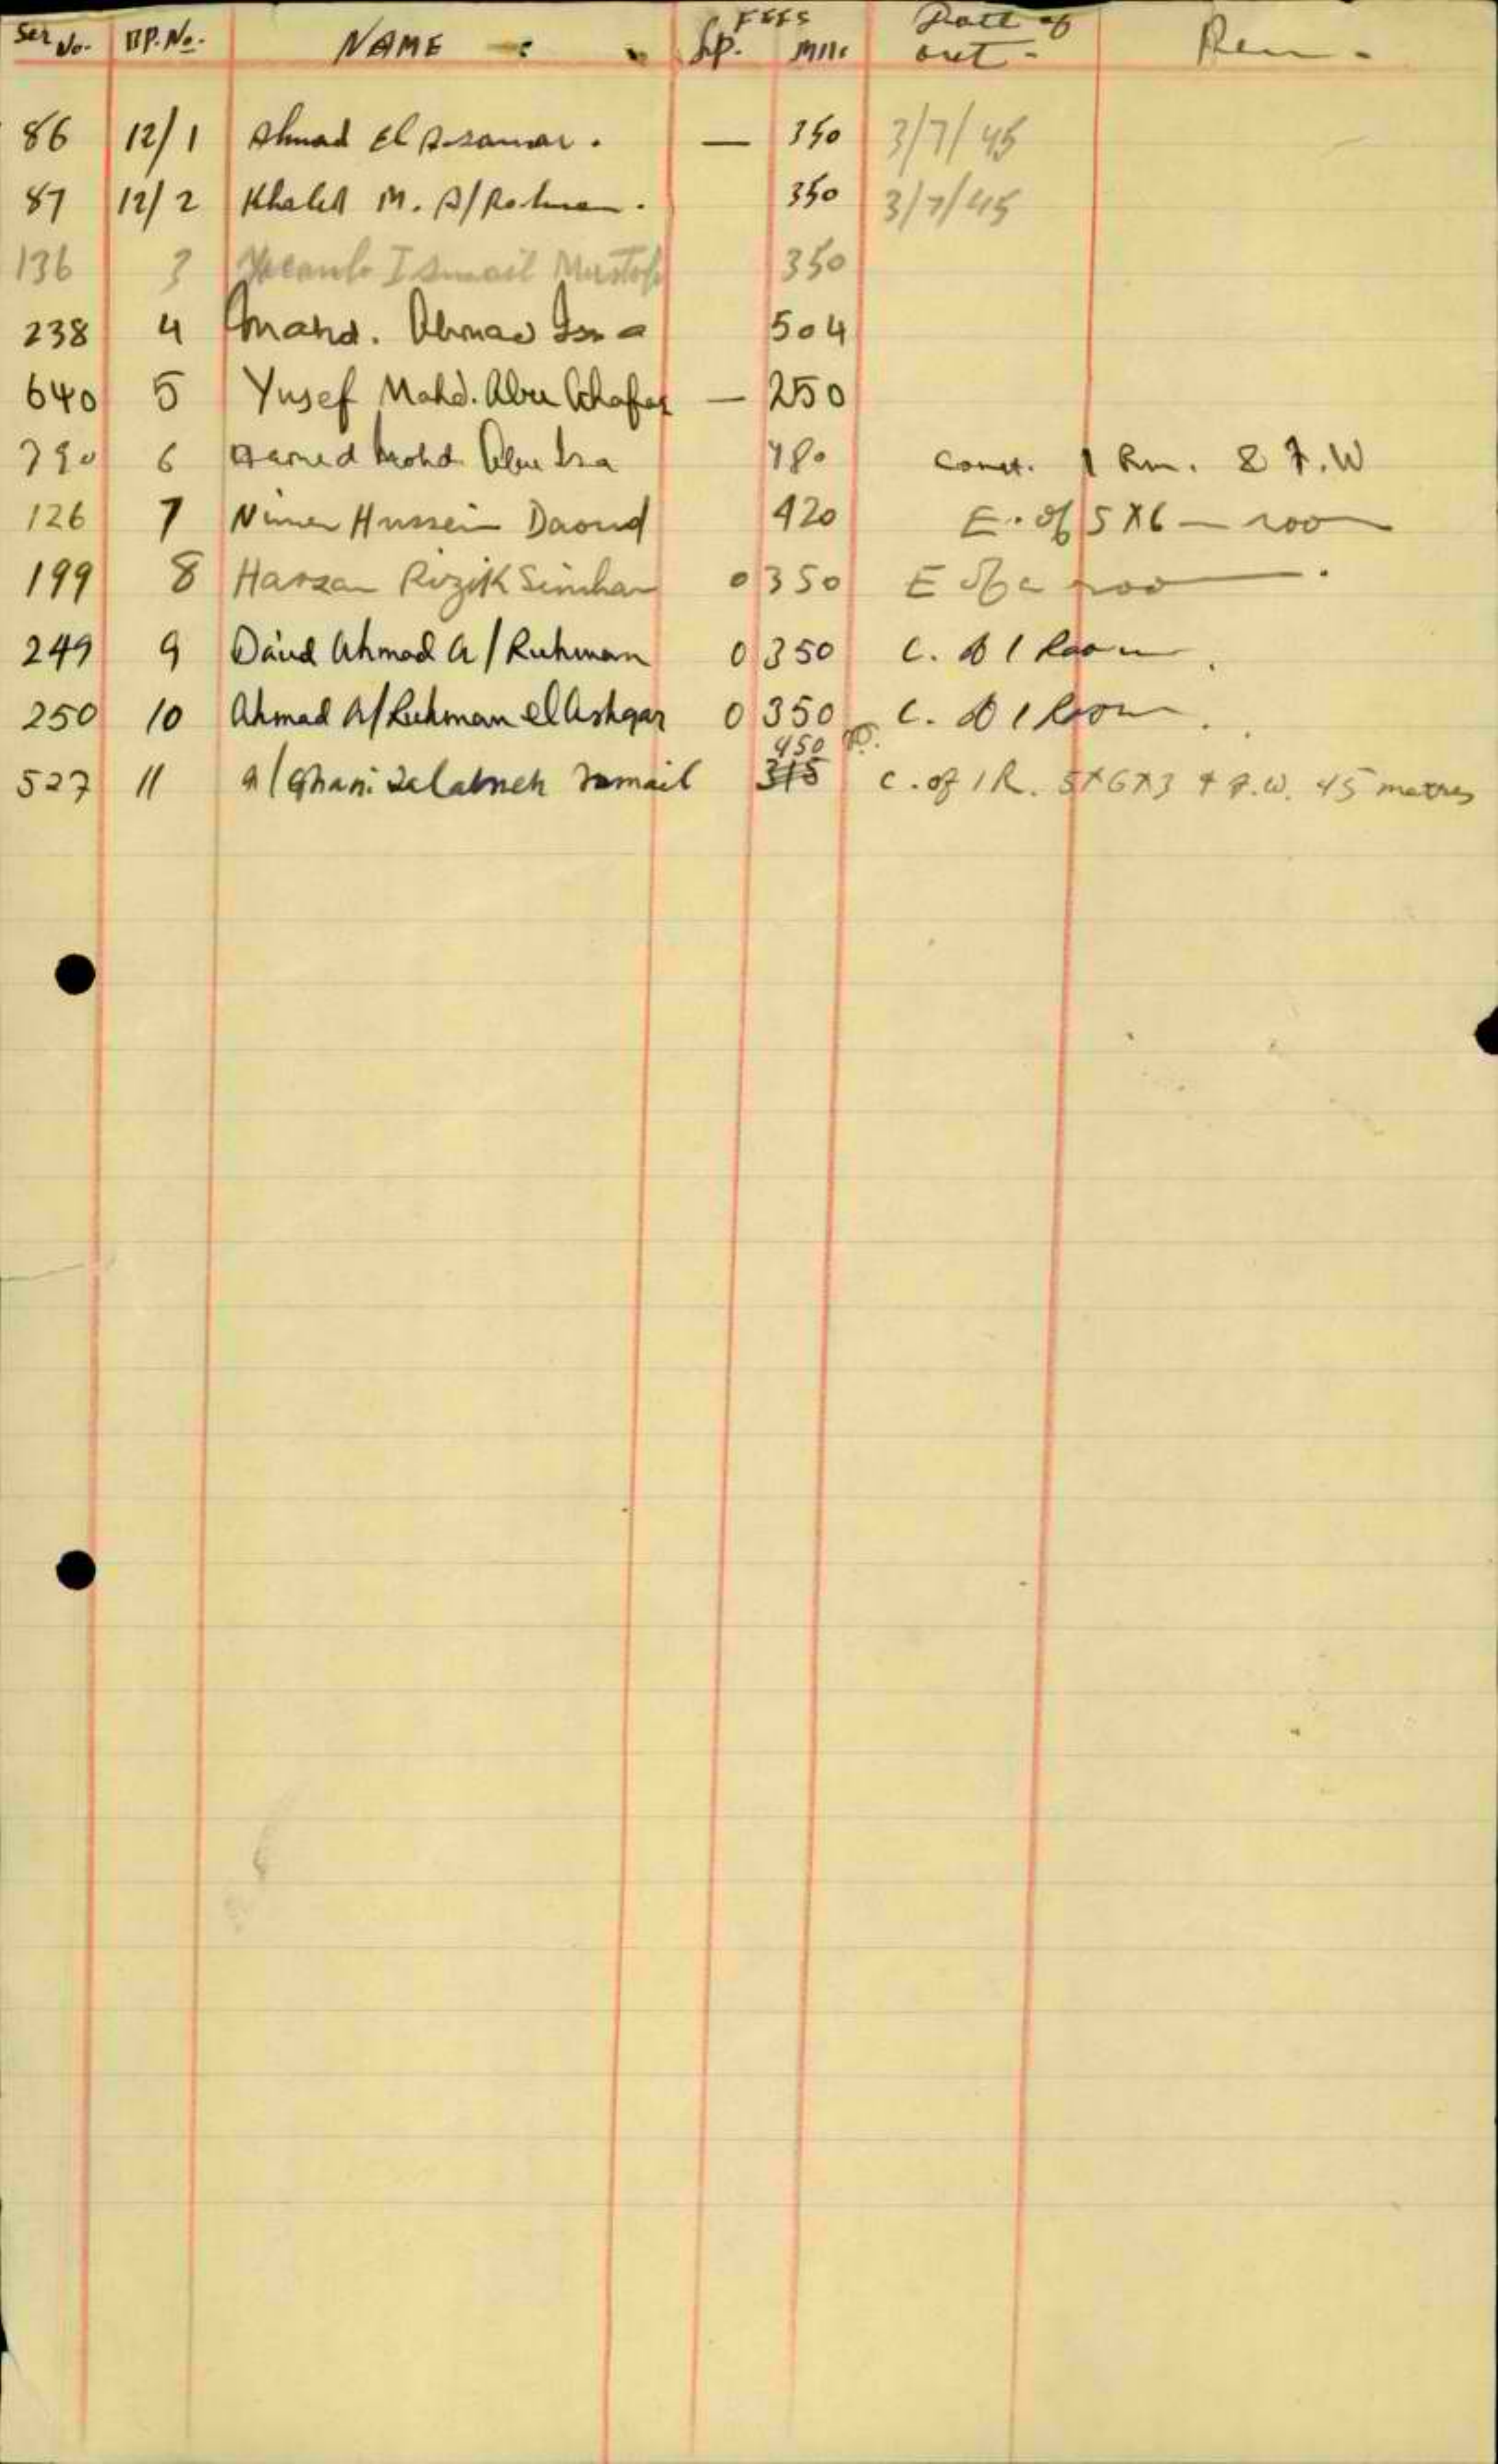 Ser No. BP. No. NAME : FEES Lp. Mils Date of out - Rem -
86 12/1 Ahmad El . — 350 3/7/45
87 12/2 Khaled M. A/Rahman. 350 3/7/45
136 3 Ismail Mustafa 350
238 4 Mahd. Ahmad Issa 504
640 5 Yusef Mahd. Abu — 250
790 6 Hamed Mohd Abu Isa 480 Const. 1 Rm. & F.W
126 7 Nimer Hussein Daoud 420 E. of 5 X 6 — room
199 8 Hassan Rizik Simhan 0 350 E of a room.
249 9 Daud Ahmad A/Ruhman 0 350 C. of 1 Room.
250 10 Ahmad A/Ruhman el Ashqar 0 350 C. of 1 Room.
450
527 11 A/Ghani Ismail 315 C. of 1 R. 5X6X3 + F.W. 45 metres